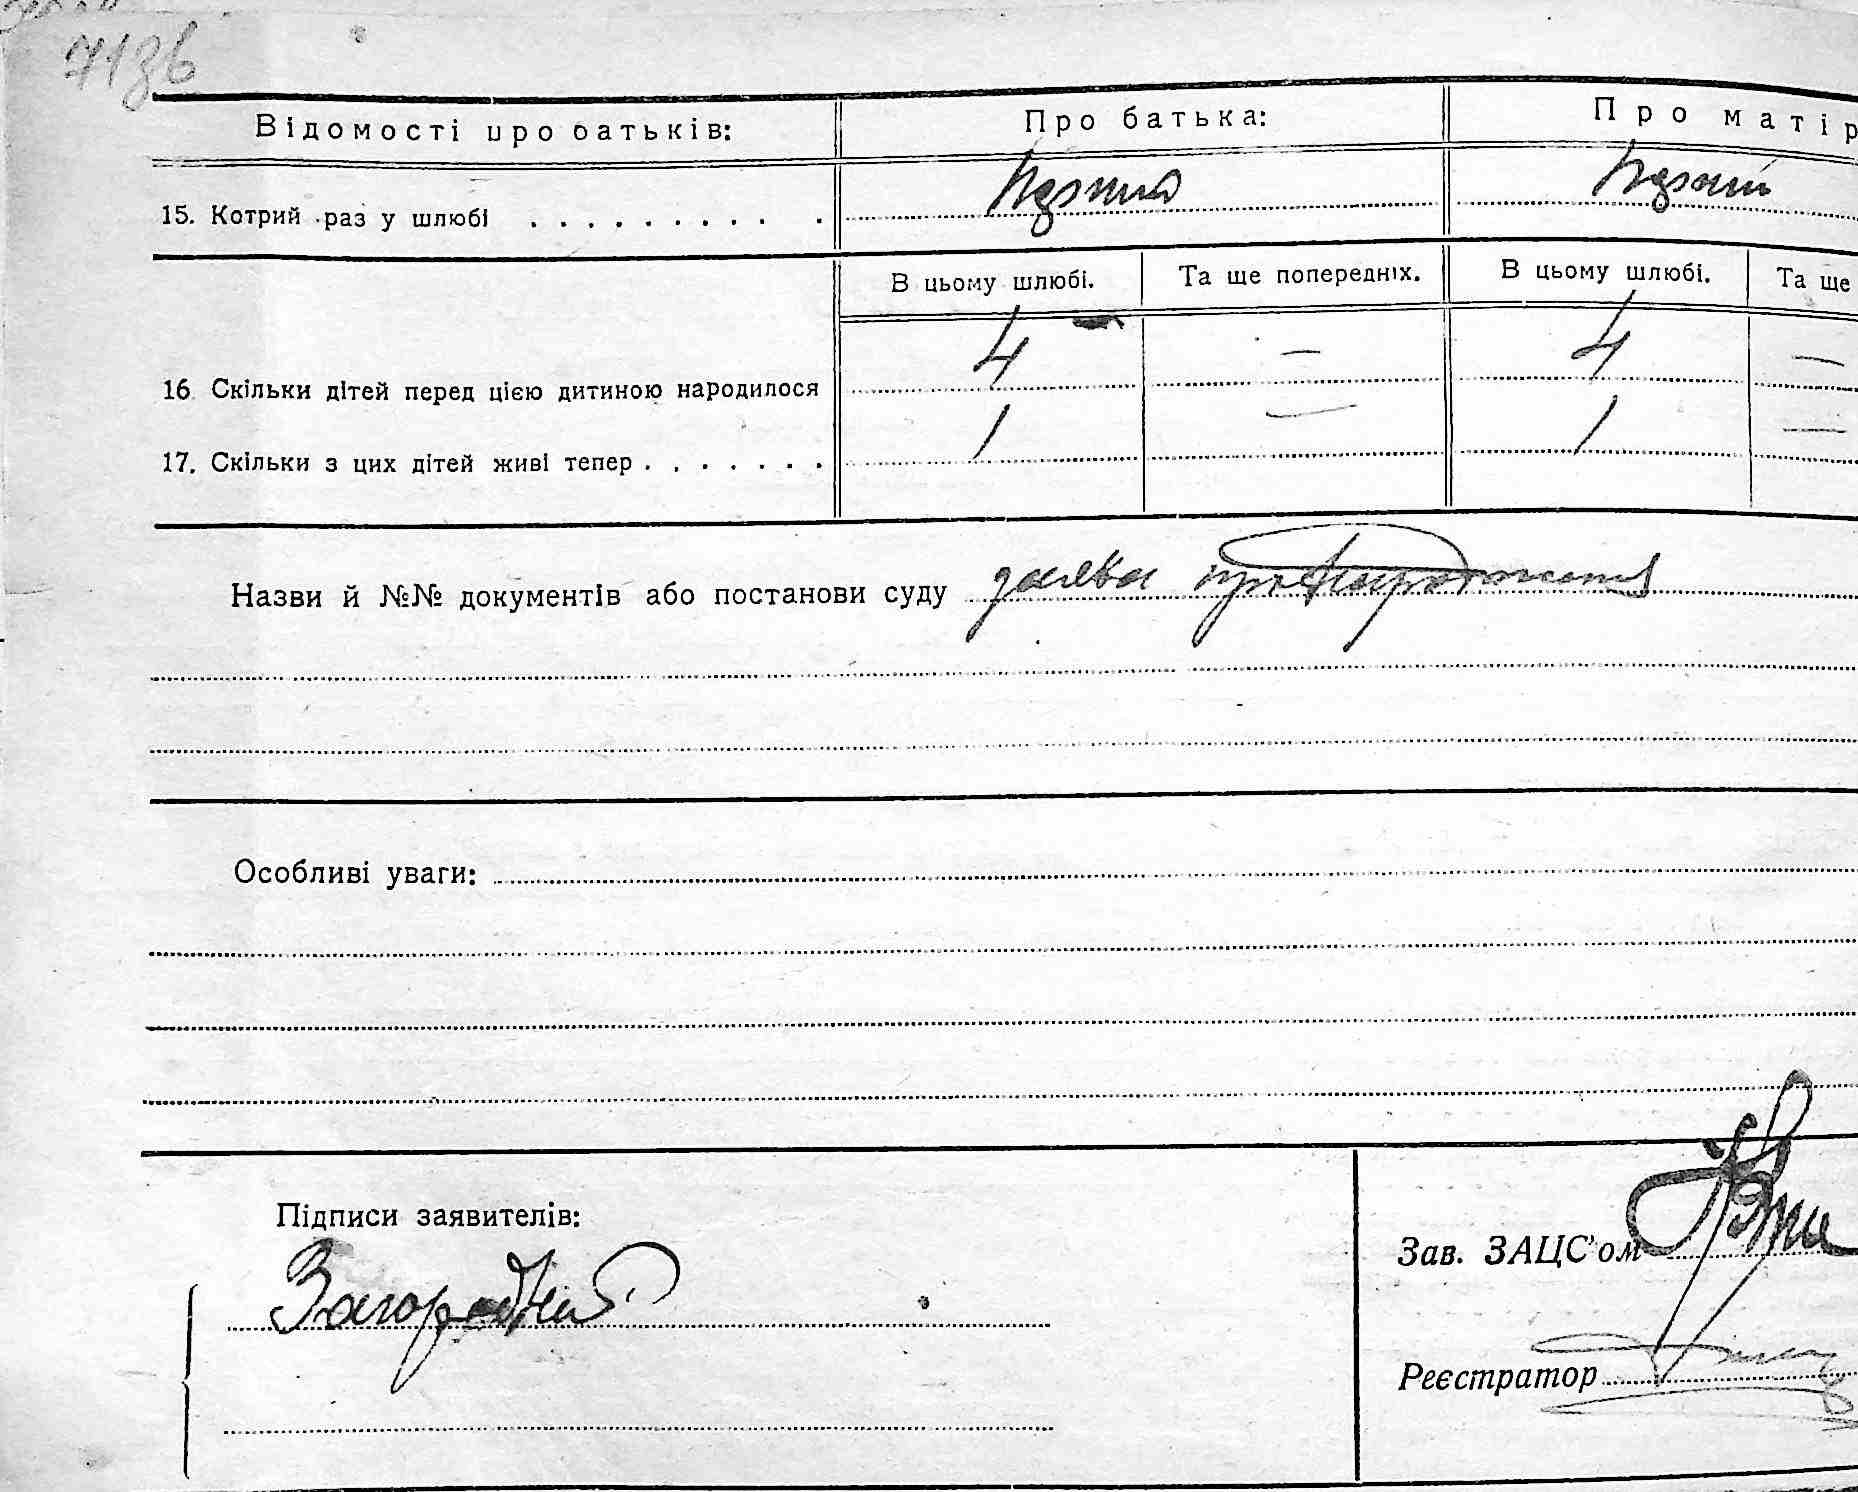 71зв
Відомості про батьків: Про батька: Про матір
15. Котрий раз у шлюбі . . . . . . . . . . Перший Перший
В цьому шлюбі. Та ще попередніх. В цьому шлюбі. Та ще
16 Скільки дітей перед цією дитиною народилося 4 — 4 —
17. Скільки з цих дітей живі тепер . . . . . . . 1 — 1 —
Назви й №№ документів або постанови суду заява про народження
Особливі уваги:
Підписи заявителів:
Зав. ЗАЦС'ом
Загородній
Реєстратор